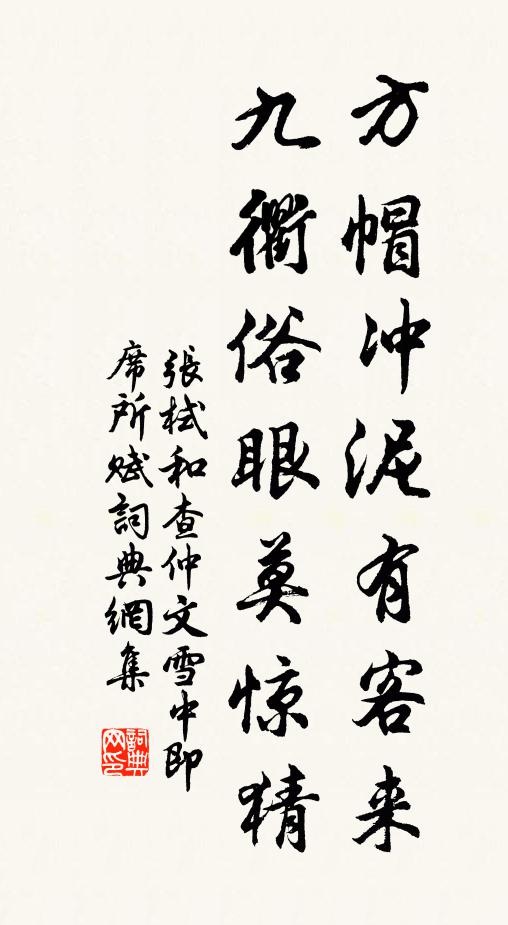 方帽冲泥有客来
九衢俗眼莫惊猜
張栻和查仲文雪中即
席所赋詞典網集
詞典
网印